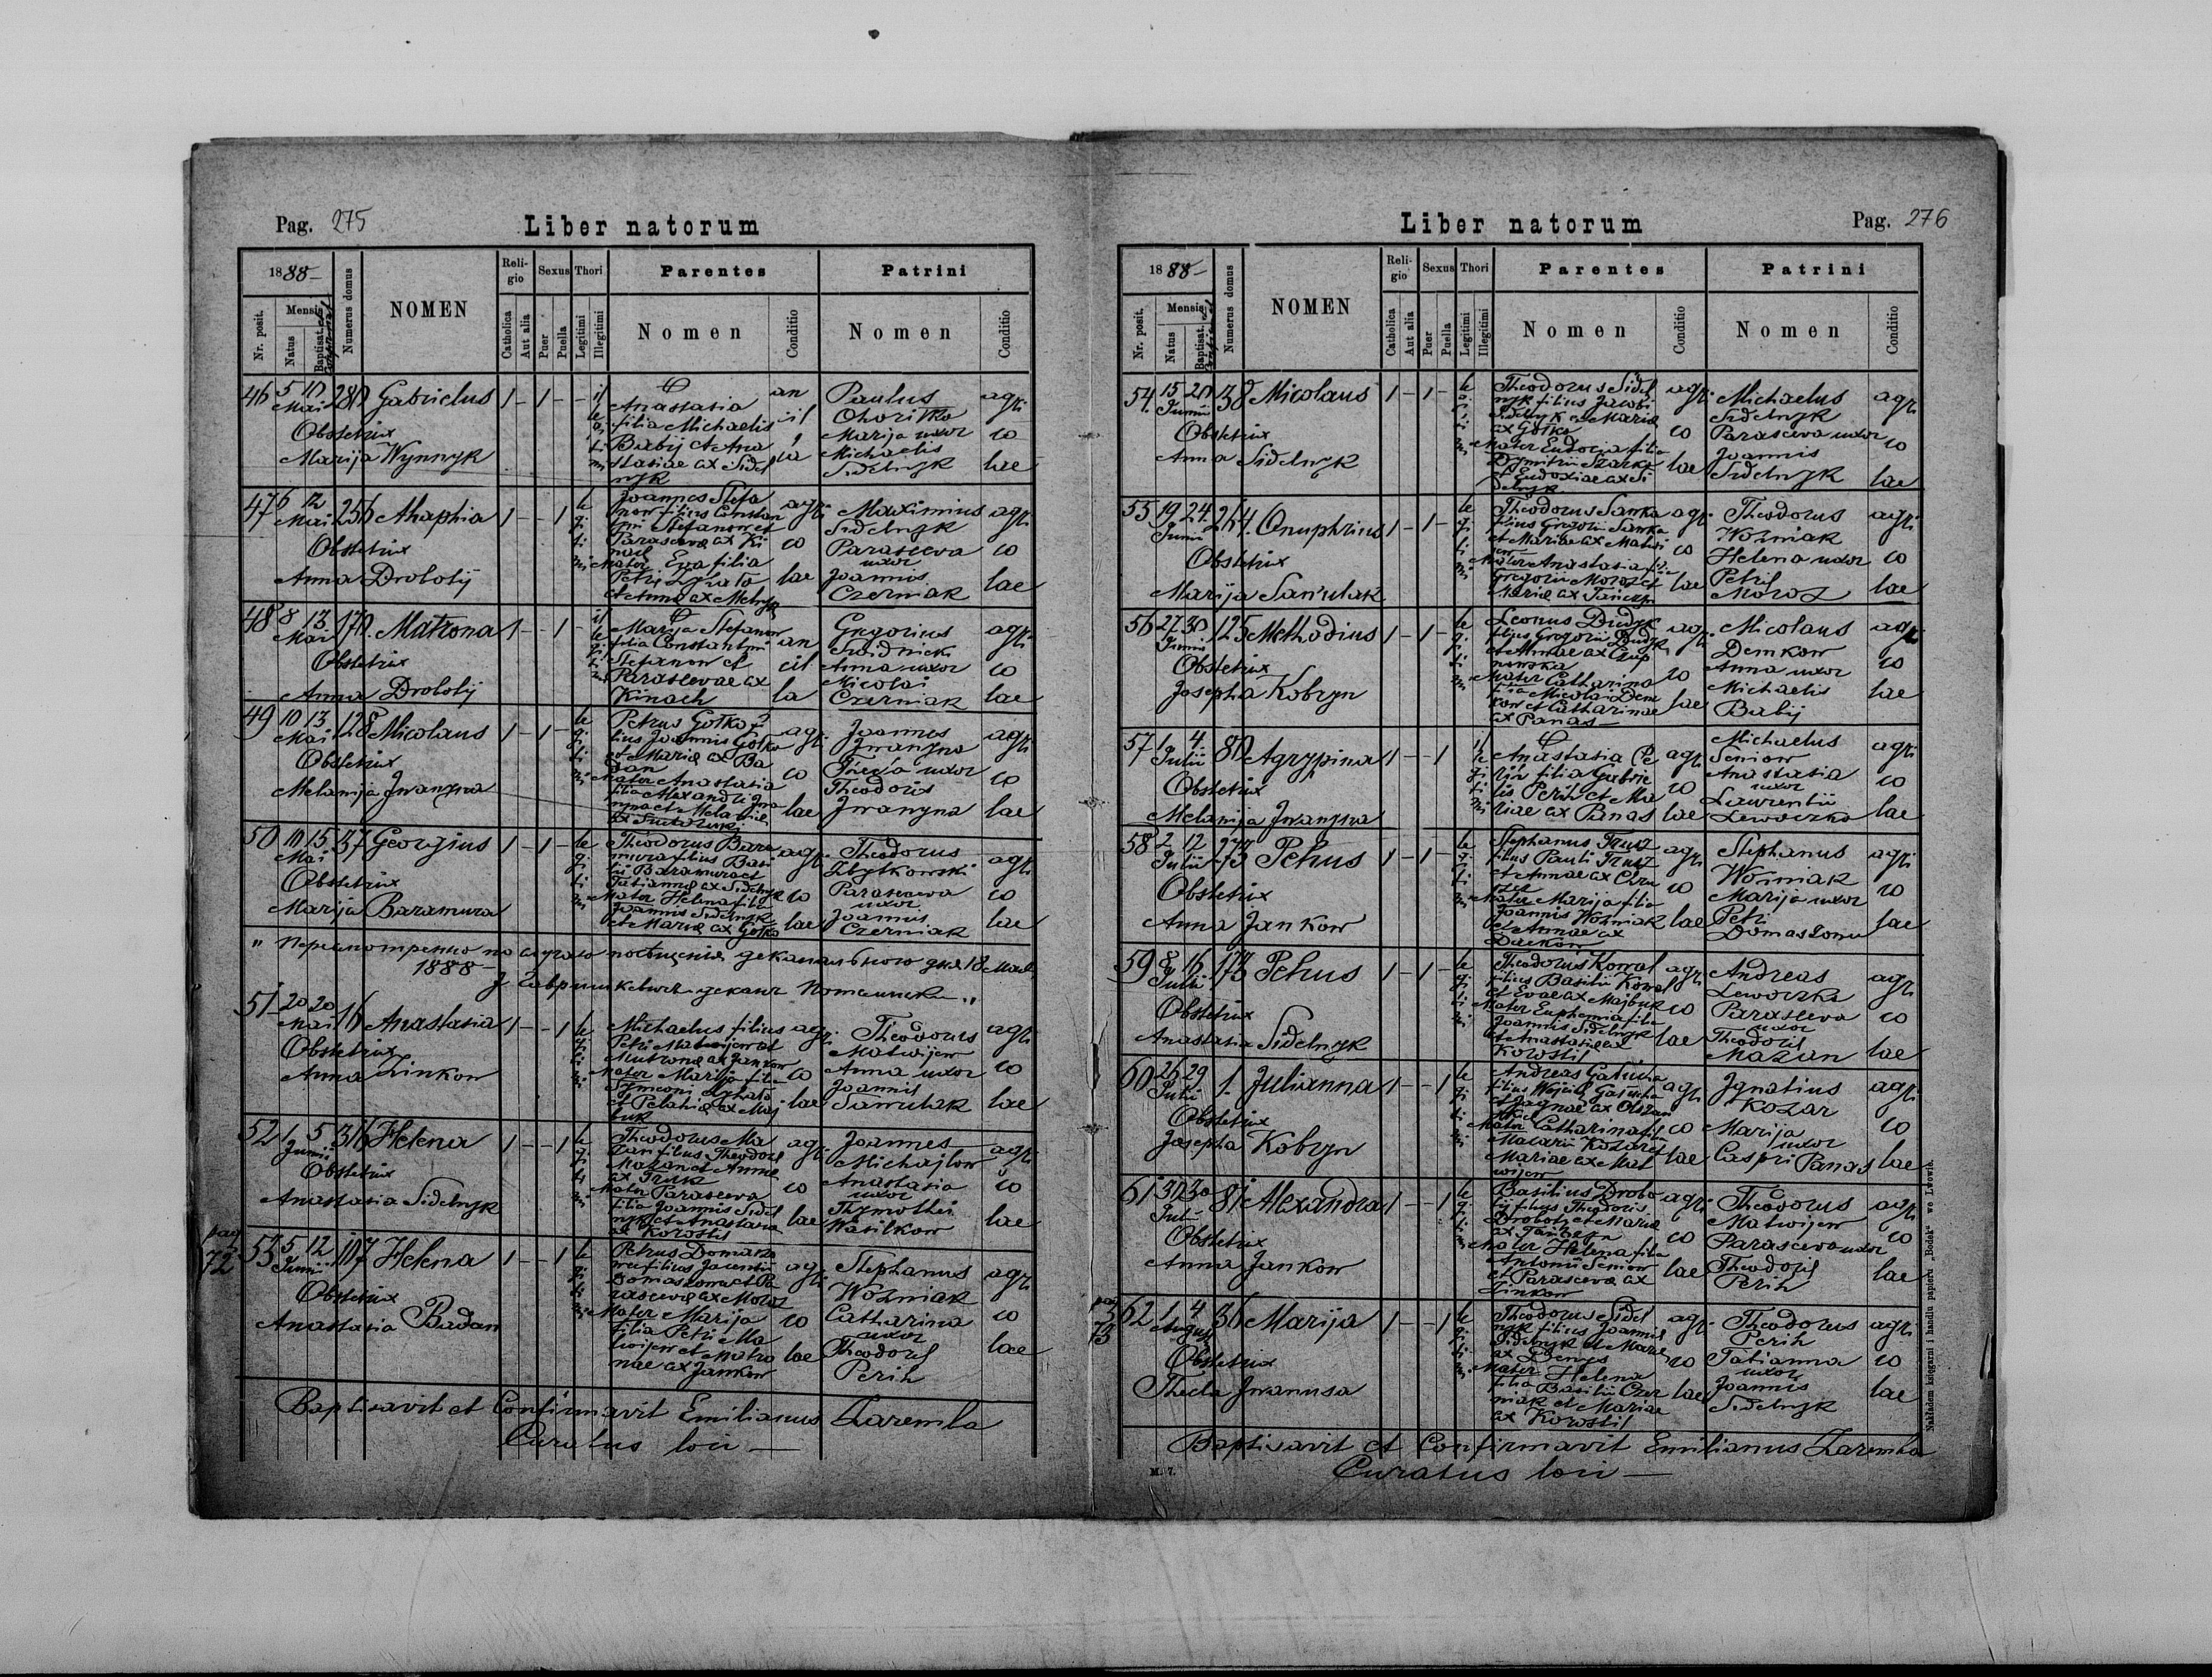 Pag. 275
Liber natorum
1888
Nr. posit.
Mensis
Natus
Baptisat.
Numerus domus
NOMEN
Religio
Catholica
Aut alia
Sexus
Puer
Puella
Thori
Legitimi
Illegitimi
Parentes
Nomen
Conditio
Patrini
Nomen
Conditio
46 5 10 Mai 280 Gabrielus 1 - 1 -
Obstetrix
Marija Wynnyk
Anastasia
filia Michaelis
Babij et Ana
stasiae ex Sidel
nyk
Paulus
Marija uxor
Michaelis
Sidelnyk
agri
co
lae
47 6 12 Mai 256 Ahaphia 1 - - 1
Obstetrix
Anna Drobotij
Joannes Stefa
now filius Constan
tini Stefanow et
Parasceva ex Ki
nach
Mater Eva filia
Petri
et Anna ex Melnyk
agri
co
lae
Maximius
Sidelnyk
Parasceva
uxor
Joannis
Czerniak
agri
co
lae
48 8 13 Mai 170 Matrona 1 - - 1
Obstetrix
Anna Drobotij
Marija Stefanow
filia Constantini
Stefanow et
Parascevae ex
Kinach
Gregorius
Anna uxor
Micolai
Czerniak
agri
co
lae
49 10 13 Mai 128 Micolaus 1 - 1 -
Obstetrix
Melanija Iwanyna
Petrus Gotko fi
lius Joannis Gotko
et Mariae ex Ba
dan
Mater Anastasia
filia Alexandri Iwa
nyna et Melaniae
agri
co
lae
Joannes
Iwanyna
uxor
Theodoris
Iwanyna
agri
co
lae
50 10 15 Mai 37 Georgius 1 - 1 -
Obstetrix
Marija Baramura
Theodorus Bara
mura filius Basi
lii Baramura et
Tatianna ex Sidelnyk
Mater Helena filia
Joannis Sidelnyk
et Mariae ex Gotko
agri
co
lae
Theodorus
Zbytkowski
Parasceva
uxor
Joannis
Czerniak
agri
co
lae
1888
51 20 20 Mai 16 Anastasia 1 - - 1
Obstetrix
Anna Linkow
Michaelus filius
Petri Matwijew et
Matrona ex Jankow
Mater Marija filia
Symeoni
et Pelahiae ex Maj
buk
agri
co
lae
Theodorus
Matwijew
Anna uxor
Joannis
Sawulak
agri
co
lae
52 1 5 Junii 316 Helena 1 - - 1
Obstetrix
Anastasia Sidelnyk
Theodorus Ma
zan filius Theodori
Mazan et Annae
ex Trusz
Mater Parasceva
filia Joannis Sidel
nyk et Anastasia
ex Korostil
agri
co
lae
Joannes
Michajlow
Anastasia
uxor
Thymothei
Wasilkow
agri
co
lae
pag 72
53 5 12 Junii 107 Helena 1 - - 1
Obstetrix
Anastasia Badan
Petrus Domaszo
filius Jacentii
et Pa
rasceva ex Moroz
Mater Marija
filia Petri Ma
twijew et Matro
nae ex Jankow
agri
co
lae
Stephanus
Wozniak
Catharina
uxor
Theodoris
Perih
agri
co
lae
Baptisavit et Confirmavit Emilianus Zaremba
Curatus loci
Liber natorum
Pag. 276
1888
Nr. posit.
Mensis
Natus
Baptisat.
Numerus domus
NOMEN
Religio
Catholica
Aut alia
Sexus
Puer
Puella
Thori
Legitimi
Illegitimi
Parentes
Nomen
Conditio
Patrini
Nomen
Conditio
54 15 20 Junii 38 Micolaus 1 - 1 -
Obstetrix
Anna Sidelnyk
Theodorus Sidel
nyk filius Jacobi
Sidelnyk et Mariae
ex Gotko
Mater Eudocia filia
Dymitrii
et Eudoxiae ex Si
delnyk
agri
co
lae
Michaelus
Sidelnyk
Parasceva uxor
Joannis
Sidelnyk
agri
co
lae
55 19 24 Junii 264 Onuphrius 1 - 1 -
Obstetrix
Marija Sawulak
Theodorus Sawka
filius Gregorii Sawka
et Mariae ex Matwi
jew
Mater Anastasia filia
Gregorii Moroz et
Mariae ex
agri
co
lae
Theodorus
Wozniak
Helena uxor
Petri
Moroz
agri
co
lae
56 27 30 Junii 125 Methodius 1 - 1 -
Obstetrix
Josepha Kobryn
Leonus Dudyk
filius Gregorii Dudyk
et Annae ex
Mater Catharina
filia Micolai Dem
kow et Catharinae
ex Panas
agri
co
lae
Micolaus
Demkow
Anna uxor
Michaelis
Babij
agri
co
lae
57 1 4 Julii 80 Agrypina 1 - - 1
Obstetrix
Melanija Iwanyna
Anastasia Pe
rih filia Gabrie
lis Perih et Ma
riae ex Panas
agri
co
lae
Michaelus
Seniow
Anastasia
uxor
Laurentii
Lewoczko
agri
co
lae
58 2 12 Julii 273 Petrus 1 - 1 -
Obstetrix
Anna Jankow
Stephanus Trusz
filius Pauli Trusz
et Annae ex
Mater Marija filia
Joannis Wozniak
et Annae ex
agri
co
lae
Stephanus
Wozniak
Marija uxor
Petri
agri
co
lae
59 8 16 Julii 173 Petrus 1 - 1 -
Obstetrix
Anastasia Sidelnyk
Theodorus Kowal
filius Basilii Kowal
et Evae ex Majbuk
Mater Euphemia filia
Joannis Sidelnyk
et Anastasiae ex
Korostil
agri
co
lae
Andreas
Lewoczko
Parasceva
uxor
Theodoris
Mazan
agri
co
lae
60 25 29 Julii 1. Julianna 1 - - 1
Obstetrix
Josepha Kobryn
Andreas
filius
et Jagnae ex
Mater Catharina filia
Macarii Kozar et
Mariae ex Mat
wijew
agri
co
lae
Ignatius
Kozar
Marija
uxor
Caspri Panas
agri
co
lae
61 30 30 Julii 81 Alexandra 1 - - 1
Obstetrix
Anna Jankow
Basilius Drobo
tij filius Theodoris
Drobotij et Mariae
Mater Helena filia
Antonii Seniow
et Parasceva ex
Linkow
agri
co
lae
Theodorus
Matwijew
Parasceva uxor
Theodoris
Perih
agri
co
lae
pag 73
62 1 4 August 36 Marija 1 - - 1
Obstetrix
Thecla Iwanusa
Theodorus Sidel
nyk filius Joannis
Sidelnyk et Mariae
ex Denys
Mater Helena
filia Basilii Czer
niak et Mariae
ex Korostil
agri
co
lae
Theodorus
Perih
Tatianna
uxor
Joannis
Sidelnyk
agri
co
lae
Baptisavit et Confirmavit Emilianus Zaremba
Curatus loci
M. 7.
Nakładem księgarni i handlu papieru „Bodek“ we Lwowie.